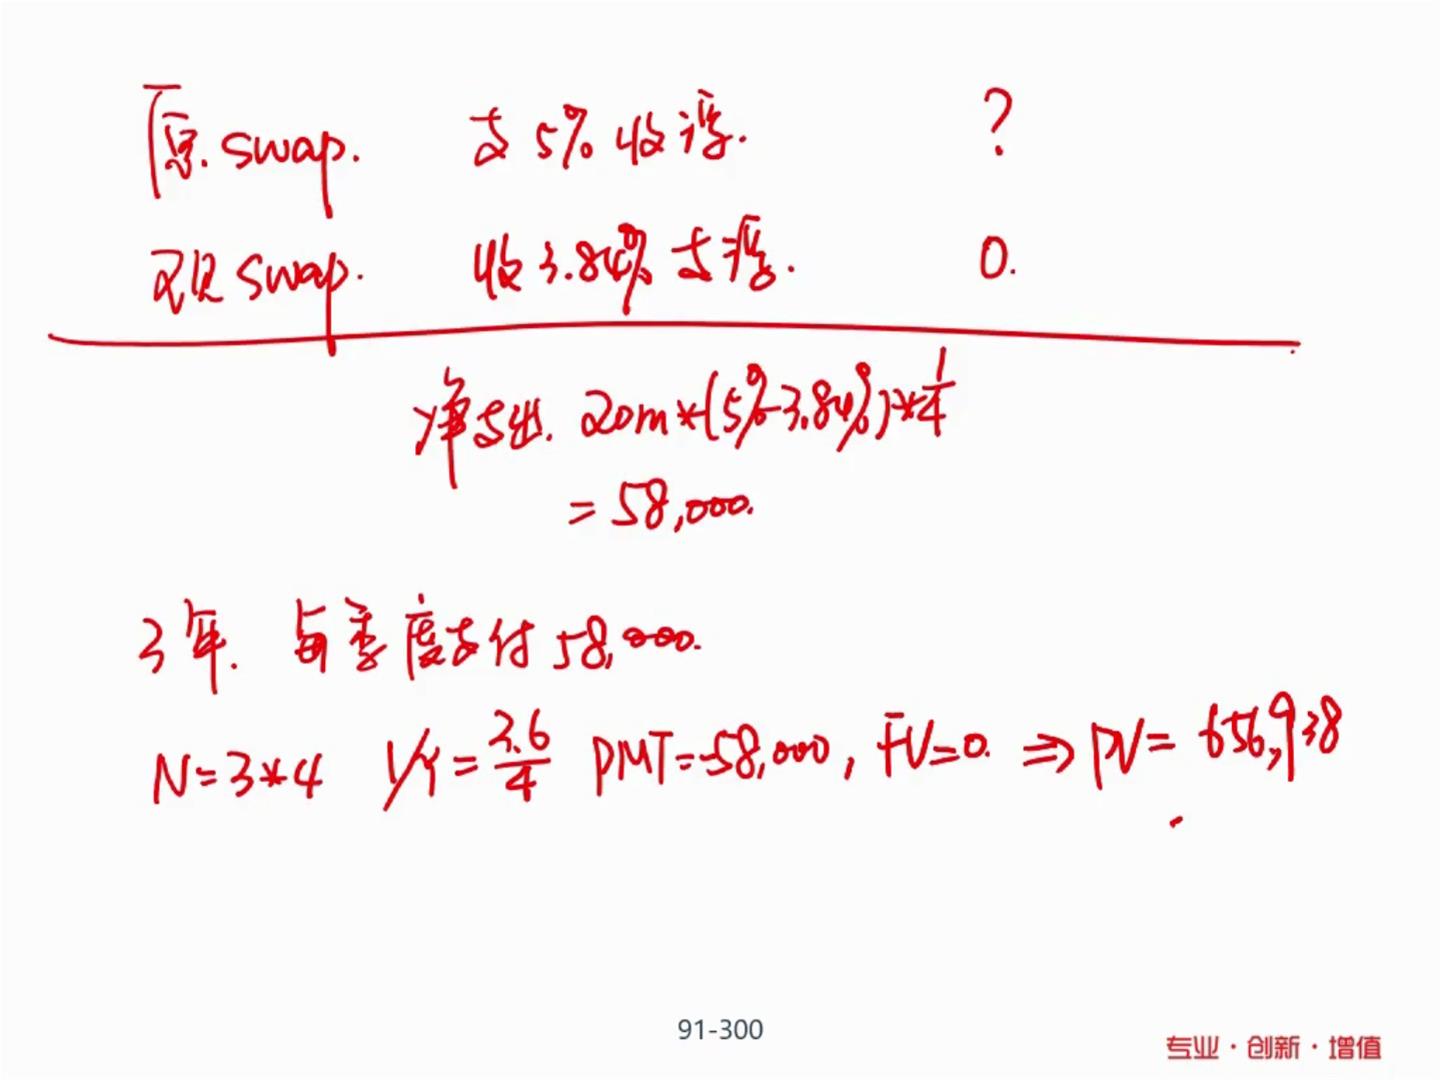 原. swap. 支 5% 收浮. ?
现 swap. 收 3.84% 支浮. 0.
净支出. 20m*(5%-3.84%)*1/4
= 58,000.
3年. 每季度支付 58,000.
N=3*4 I/Y=3.6/4 PMT=-58,000, FV=0. ⇒ PV= 656,938
91-300
专业·创新·增值